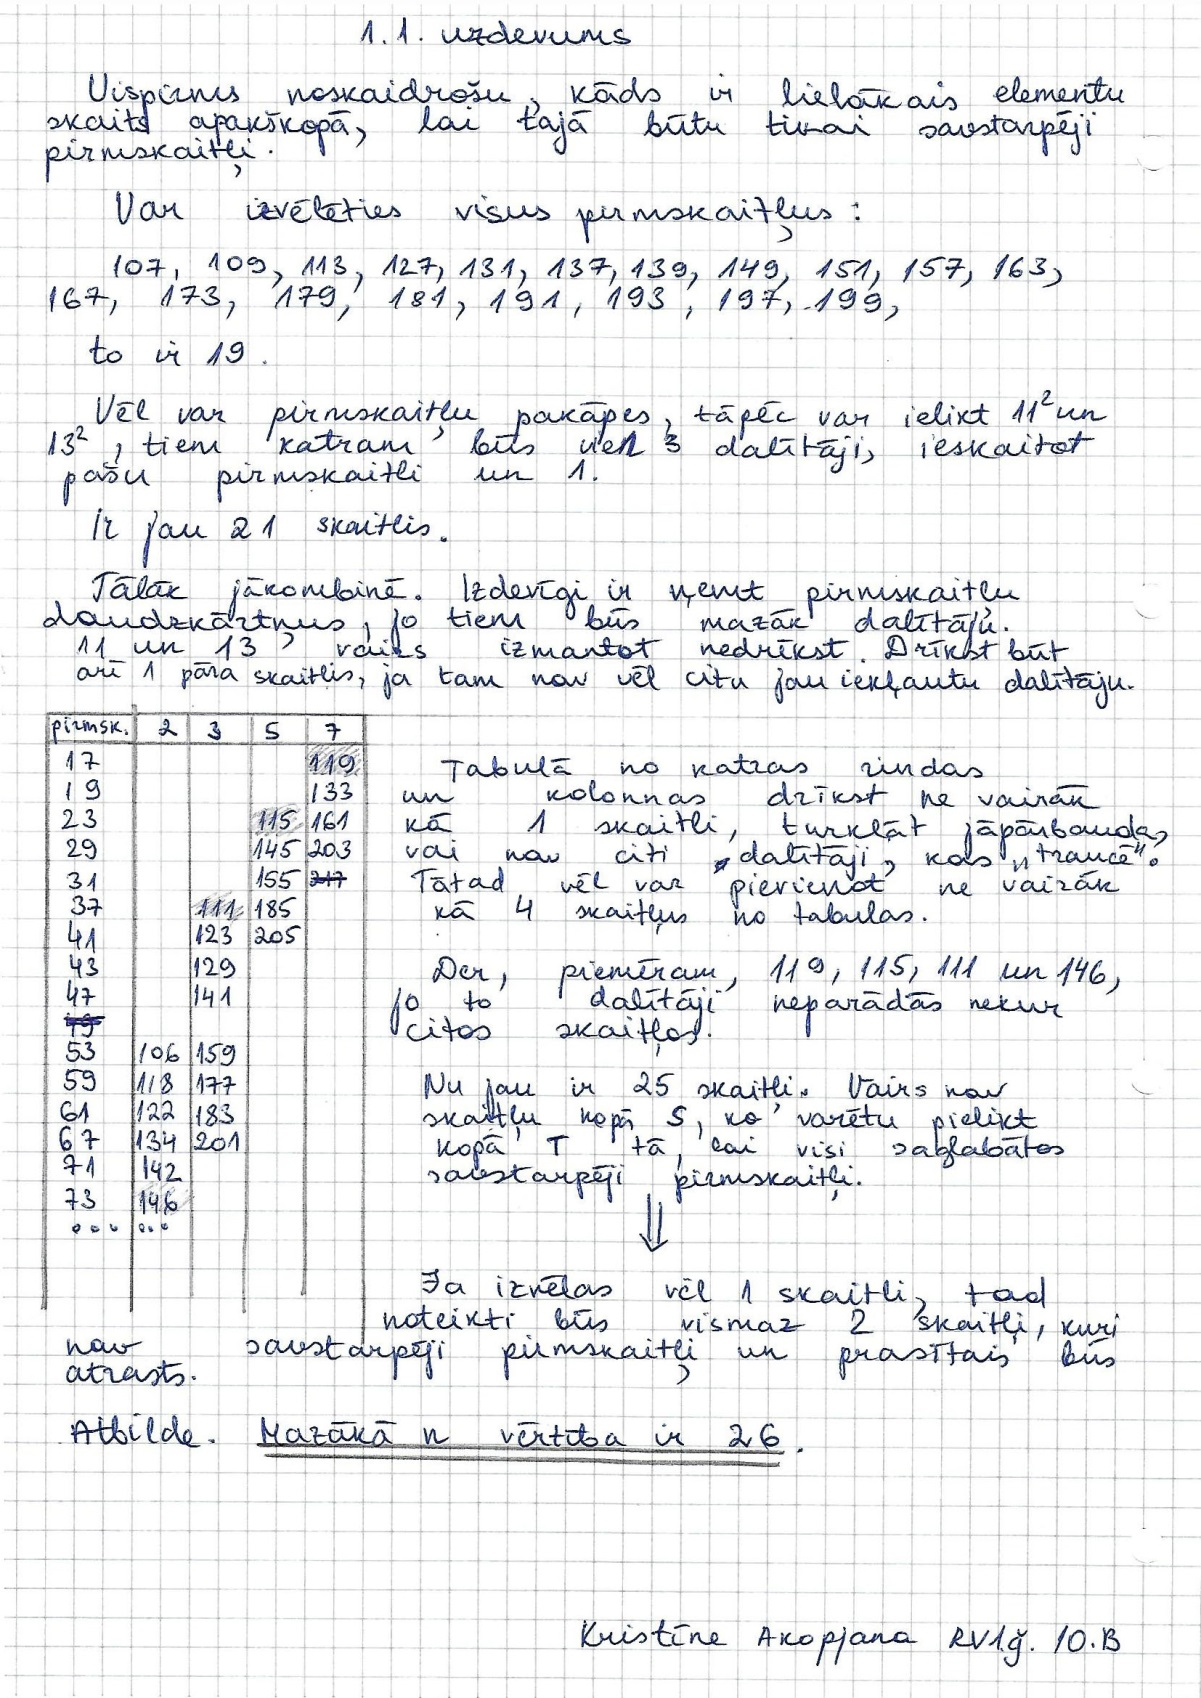 1.1. uzdevums
Vispirms noskaidrošu, kāds ir lielākais elementu
skaits apakškopā, lai tajā būtu tikai savstarpēji
pirmskaitļi.
Var izvēlēties visus pirmskaitļus:
107, 109, 113, 127, 131, 137, 139, 149, 151, 157, 163,
167, 173, 179, 181, 191, 193, 197, 199,
to ir 19.
Vēl var pirmskaitļu pakāpes, tāpēc var ielikt 11² un
13², tiem katram būs 3 dalītāji, ieskaitot
pašu pirmskaitli un 1.
Ir jau 21 skaitlis.
Tālāk jākombinē. Izdevīgi ir ņemt pirmskaitļu
daudzkārtņus, jo tiem būs mazāk dalītāju.
11 un 13 vairs izmantot nedrīkst. Drīkst būt
arī 1 pāra skaitlis, ja tam nav vēl citu jau iekļautu dalītāju.
pirmsk. 2 3 5 7
17 119
19 133
23 115 161
29 145 203
31 155 217
37 111 185
41 123 205
43 129
47 141
53 106 159
59 118 177
61 122 183
67 134 201
71 142
73 146
... ...
Tabulā no katras rindas
un kolonnas drīkst ne vairāk
kā 1 skaitli, turklāt jāpārbauda,
vai nav citi dalītāji, kas „traucē".
Tātad vēl var pievienot ne vairāk
kā 4 skaitļus no tabulas.
Der, piemēram, 119, 115, 111 un 146,
jo to dalītāji neparādās nekur
citos skaitļos.
Nu jau ir 25 skaitļi. Vairs nav
skaitļu kopā S, ko varētu pielikt
kopā T tā, lai visi saglabātos
savstarpēji pirmskaitļi.
⇓
Ja izvēlas vēl 1 skaitli, tad
noteikti būs vismaz 2 skaitļi, kuri
nav savstarpēji pirmskaitļi un prasītais būs
atrasts.
Atbilde. Mazākā n vērtība ir 26.
Kristīne Akopjana RV1.ģ. 10.B